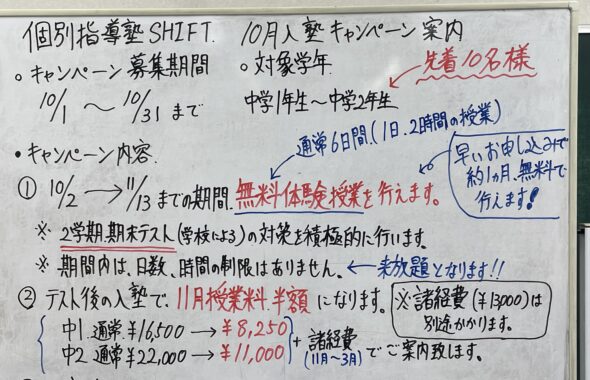 個別指導塾SHIFT. 10月入塾キャンペーン案内
○ キャンペーン募集期間 ○ 対象学年 先着10名様
10/1 〜 10/31 まで 中学1年生〜中学2年生
通常6日間.(1日.2時間の授業)
・キャンペーン内容.
早いお申し込みで
約1ヵ月.無料で
行えます!
① 10/2 → 11/13 までの期間.無料体験授業を行えます。
※ 2学期期末テスト(学校による)の対策を積極的に行います。
※ 期間内は、日数、時間の制限はありません。← 来放題となります!!
② テスト後の入塾で、11月授業料.半額になります。
※諸経費(¥13,000)は
別途かかります。
中1.通常¥16,500 → ¥8,250
中2.通常¥22,000 → ¥11,000
+諸経費でご案内致します。
(11月〜3月)